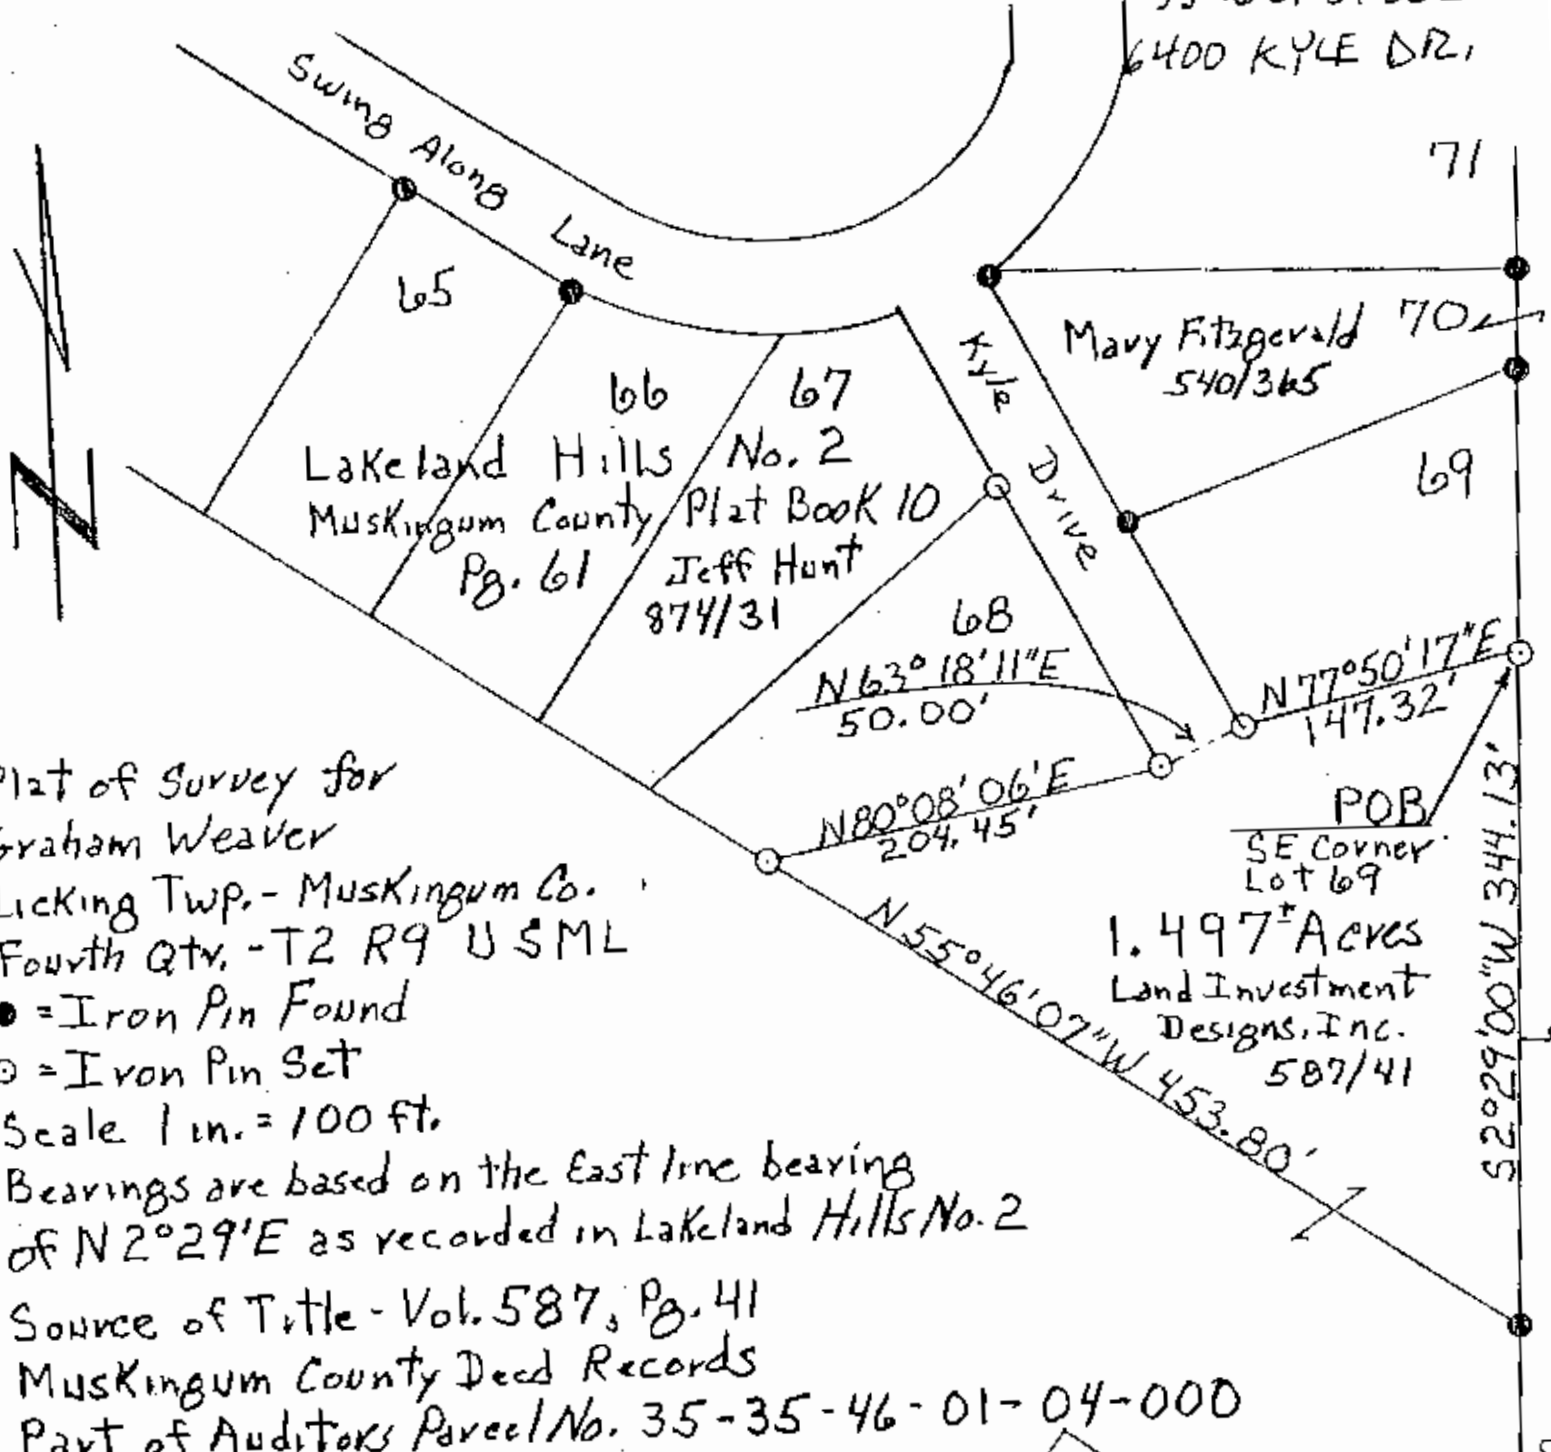 6400 KYLE DR.
Swing Along Lane
71
65
Mary Fitzgerald
540/365
70
66
67
Kyle Drive
Lakeland Hills No. 2
Muskingum County Plat Book 10
Pg. 61
Jeff Hunt
874/31
69
68
N 63° 18' 11" E
50.00'
N 77° 50' 17" E
147.32'
N 80° 08' 06" E
204.45'
POB
SE Corner
Lot 69
1.497± Acres
Land Investment
Designs, Inc.
587/41
S 2° 29' 00" W 344.13'
N 55° 46' 07" W 453.80'
Plat of Survey for
Graham Weaver
Licking Twp. - Muskingum Co.
Fourth Qtr. - T2 R9 USML
= Iron Pin Found
= Iron Pin Set
Scale 1 in. = 100 ft.
Bearings are based on the East line bearing
of N 2° 29' E as recorded in Lakeland Hills No. 2
Source of Title - Vol. 587, Pg. 41
Muskingum County Deed Records
Part of Auditors Parcel No. 35-35-46-01-04-000
N